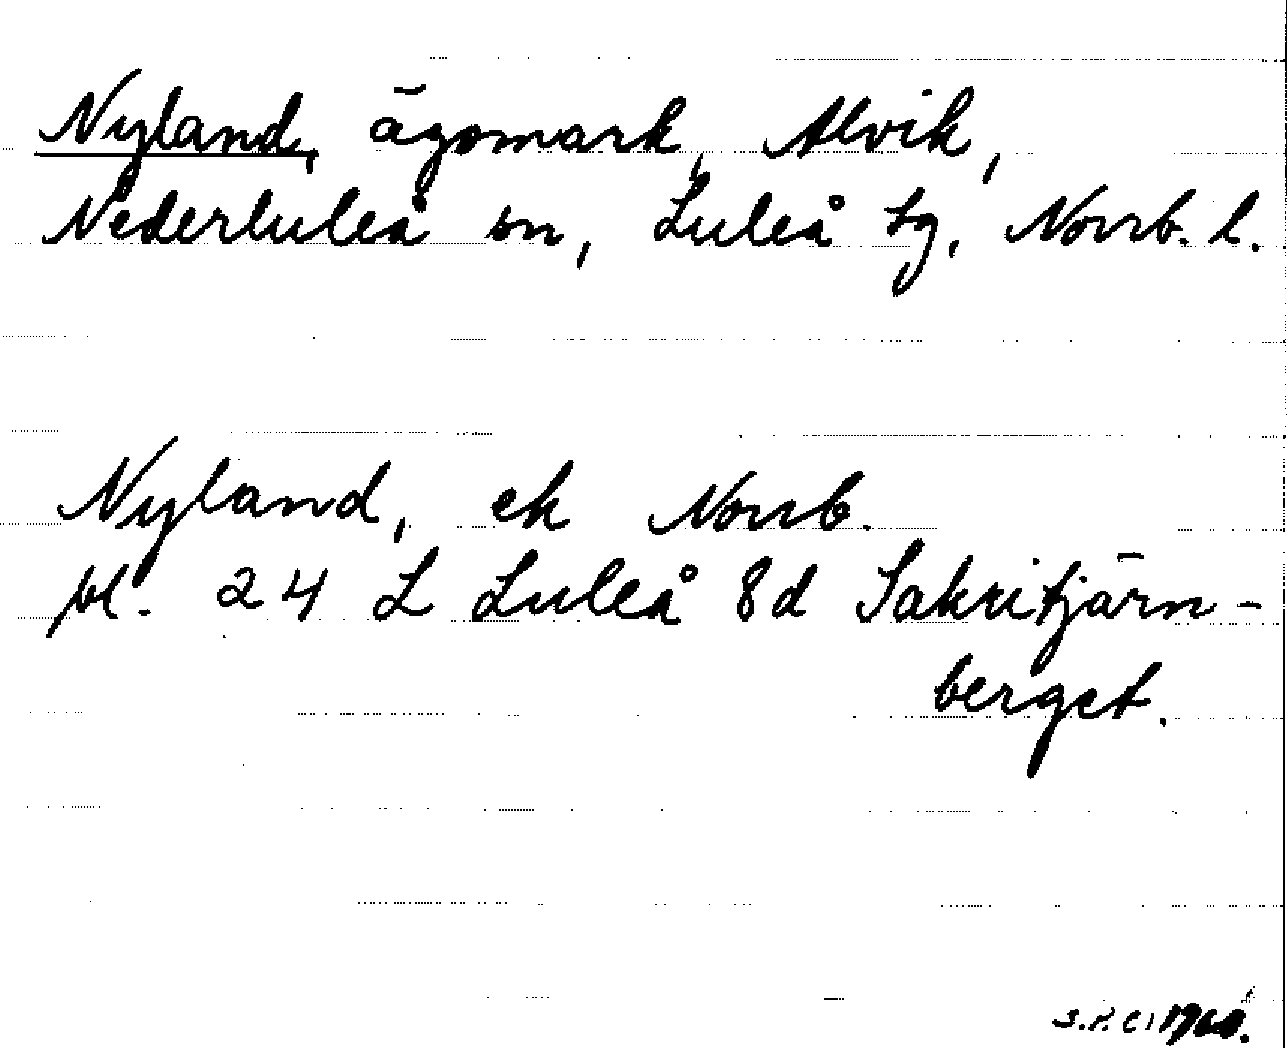 Nyland, ägomark, Alvik,
Nederluleå sn, Luleå tg, Norrb. l.
Nyland, ek Norrb.
bl. 24 L Luleå 8d Sakritjärn-
berget.